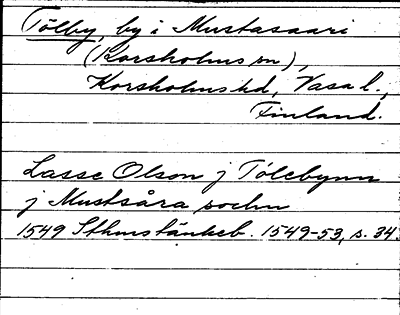 Tölby, by i Mustasaari
(Korsholms sn),
Korsholms hd, Vasa l.,
Finland.
Lasse Olson j Tölebynn
j Mustsåra sochn
1549 Sthms tänkeb. 1549-53, s. 343